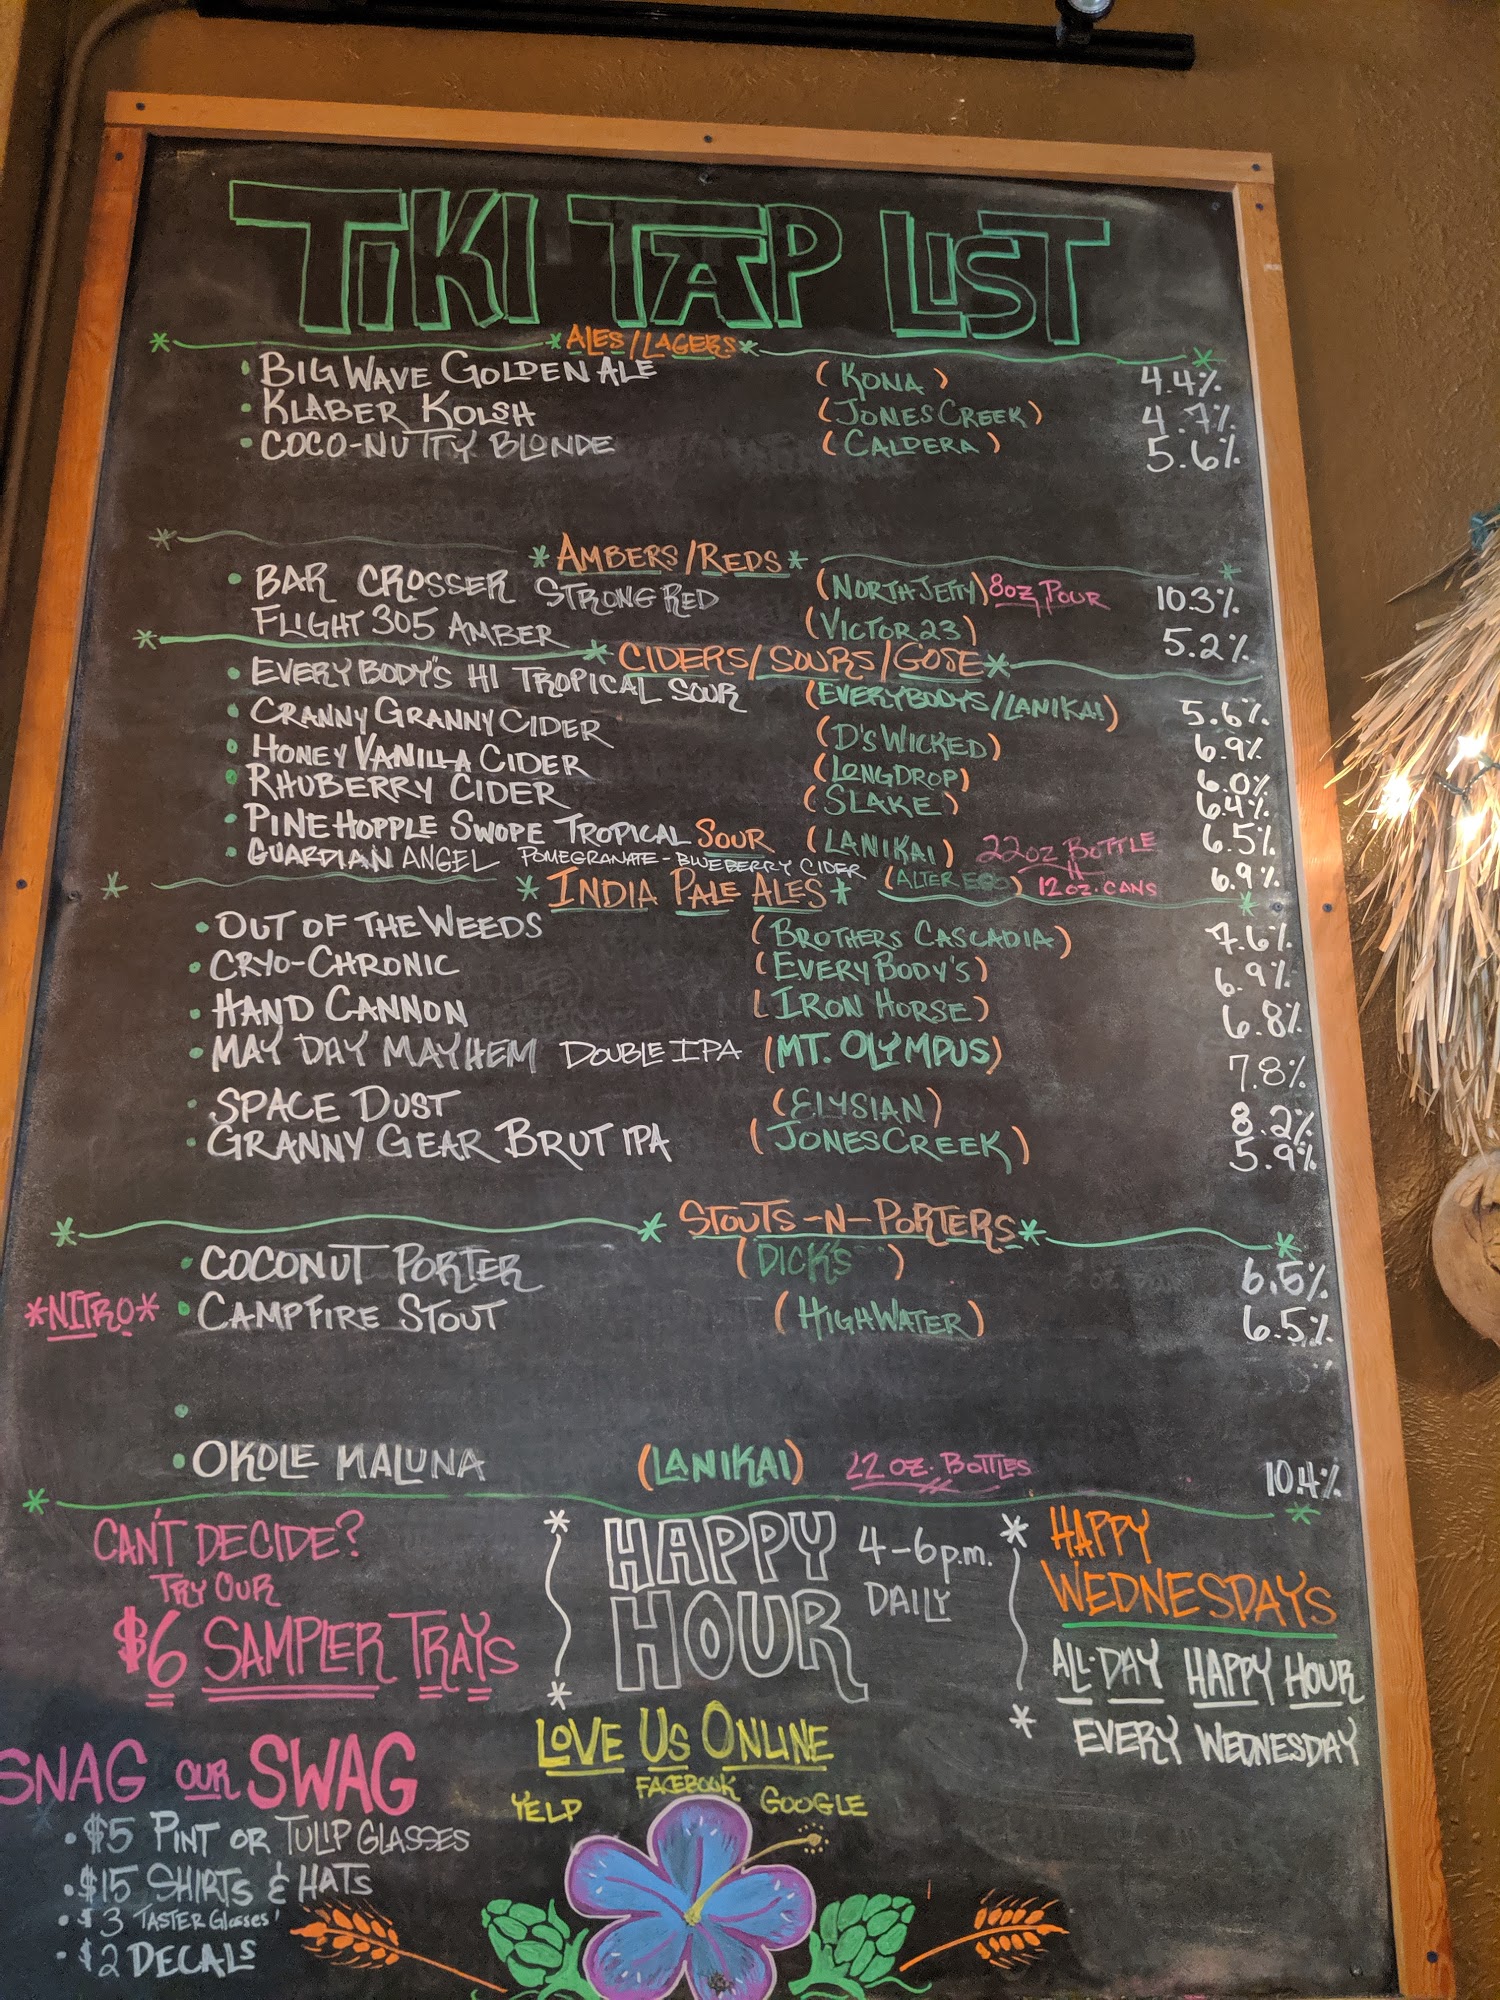 TIKI TAP LIST
*ALES/LAGERS*
• BIG WAVE GOLDEN ALE (KONA) 4.4%
• KLABER KOLSH (JONES CREEK) 4.7%
• COCO-NUTTY BLONDE (CALDERA) 5.6%
*AMBERS/REDS*
• BAR CROSSER STRONG RED (NORTH JETTY) 8oz POUR 10.3%
FLIGHT 305 AMBER (VICTOR 23) 5.2%
*CIDERS/SOURS/GOSE*
• EVERYBODY'S HI TROPICAL SOUR (EVERYBODYS/LANIKAI) 5.6%
• CRANNY GRANNY CIDER (D'S WICKED) 6.9%
• HONEY VANILLA CIDER (LONGDROP) 6.0%
• RHUBERRY CIDER (SLAKE) 6.4%
• PINEHOPPLE SWOPE TROPICAL SOUR (LANIKAI) 22oz BOTTLE 6.5%
• GUARDIAN ANGEL POMEGRANATE-BLUEBERRY CIDER (ALTER EGO) 12oz. CANS 6.9%
*INDIA PALE ALES*
• OUT OF THE WEEDS (BROTHERS CASCADIA) 7.6%
• CRYO-CHRONIC (EVERYBODY'S) 6.9%
• HAND CANNON (IRON HORSE) 6.8%
• MAY DAY MAYHEM DOUBLE IPA (MT. OLYMPUS) 7.8%
• SPACE DUST (ELYSIAN) 8.2%
• GRANNY GEAR BRUT IPA (JONES CREEK) 5.9%
*STOUTS-N-PORTERS*
• COCONUT PORTER (DICK'S) 6.5%
*NITRO* • CAMPFIRE STOUT (HIGHWATER) 6.5%
• OKOLE MALUNA (LANIKAI) 22 oz. BOTTLES 10.4%
CAN'T DECIDE?
TRY OUR
$6 SAMPLER TRAYS
HAPPY HOUR
4-6p.m.
DAILY
HAPPY
WEDNESDAYS
ALL-DAY HAPPY HOUR
EVERY WEDNESDAY
SNAG OUR SWAG
• $5 PINT OR TULIP GLASSES
• $15 SHIRTS & HATS
• $3 TASTER Glasses'
• $2 DECALS
LOVE US ONLINE
YELP FACEBOOK GOOGLE